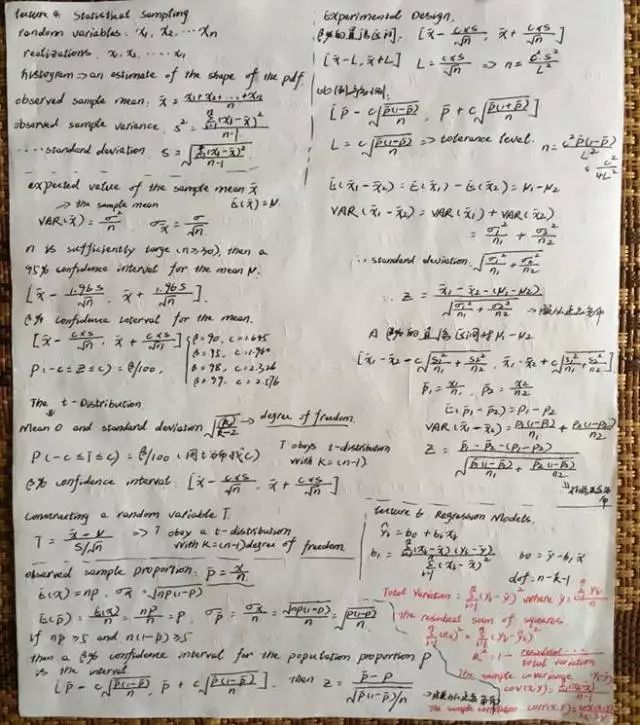 Lecture 4 Statistical Sampling
random variables: X₁, X₂, ... Xn
realizations: x₁, x₂, ... xn
histogram => an estimate of the shape of the pdf.
observed sample mean: x̄ = (x₁+x₂+...+xn)/n
observed sample variance s² = Σ(xᵢ-x̄)²/(n-1)
....standard deviation. s = √(Σ(xᵢ-x̄)²/(n-1))
expected value of the sample mean x̄
-> the sample mean E(x̄) = μ
VAR(x̄) = σ²/n σx̄ = σ/√n
n is sufficiently large (n≥30), then a
95% confidence interval for the mean μ.
[x̄ - 1.96s/√n, x̄ + 1.96s/√n].
β% confidence interval for the mean.
[x̄ - c×s/√n, x̄ + c×s/√n]
P(-c≤Z≤c) = β/100,
β=90, c=1.645
β=95, c=1.960
β=98, c=2.326
β=99, c=2.576
The t-Distribution
Mean 0 and standard deviation √(k/(k-2)) -> degree of freedom
P(-c≤T≤c) = β/100
T obeys t-distribution
with k=(n-1)
β% confidence interval: [x̄ - c×s/√n, x̄ + c×s/√n]
Constructing a random variable T
T = (x̄-μ)/(s/√n) => T obey a t-distribution
with k=(n-1) degree of freedom
observed sample proportion: p̄ = x/n
E(x) = np, σx = √(np(1-p))
E(p̄) = E(x)/n = np/n = p, σp̄ = σx/n = √(np(1-p))/n = √(p(1-p)/n)
if np≥5 and n(1-p)≥5
then a β% confidence interval for the population proportion p
is the interval
[p̄ - c√(p̄(1-p̄)/n), p̄ + c√(p̄(1-p̄)/n)]. then Z = (p̄-p)/√(p(1-p)/n)
Experimental Design.
[x̄ - c×s/√n, x̄ + c×s/√n]
[x̄-L, x̄+L] L = c×s/√n => n = c²s²/L²
[p̄ - c√(p̄(1-p̄)/n), p̄ + c√(p̄(1+p̄)/n)]
L = c√(p̄(1-p̄)/n) => tolerance level. n = c²p̄(1-p̄)/L²
= c²/4L²
E(x̄₁-x̄₂) = E(x̄₁) - E(x̄₂) = μ₁-μ₂
VAR(x̄₁-x̄₂) = VAR(x̄₁) + VAR(x̄₂)
= σ₁²/n₁ + σ₂²/n₂
∴ standard deviation. √(σ₁²/n₁ + σ₂²/n₂)
∴ Z = (x̄₁-x̄₂-(μ₁-μ₂))/√(σ₁²/n₁ + σ₂²/n₂)
[x̄₁-x̄₂-c√(s₁²/n₁+s₂²/n₂), x̄₁-x̄₂+c√(s₁²/n₁+s₂²/n₂)]
p̄₁ = x₁/n₁, p̄₂ = x₂/n₂
E(p̄₁-p̄₂) = p₁-p₂
VAR(x̄₁-x̄₂) = p₁(1-p₁)/n₁ + p₂(1-p₂)/n₂
Z = (p̄₁-p̄₂-(p₁-p₂))/√(p₁(1-p₁)/n₁ + p₂(1-p₂)/n₂)
Lecture 6 Regression Models.
ŷᵢ = b₀ + b₁xᵢ
b₁ = Σ(xᵢ-x̄)(yᵢ-ȳ)/Σ(xᵢ-x̄)² b₀ = ȳ-b₁x̄
dof = n-k-1
Total Variation = Σ(yᵢ-ȳ)² where ȳ = Σyᵢ/n
The residual sum of squares
Σ(eᵢ)² = Σ(yᵢ-ŷᵢ)²
R² = 1 - residual.../total variation
The sample covariance
cov(x,y) =
The sample correlation corr(x,y) =